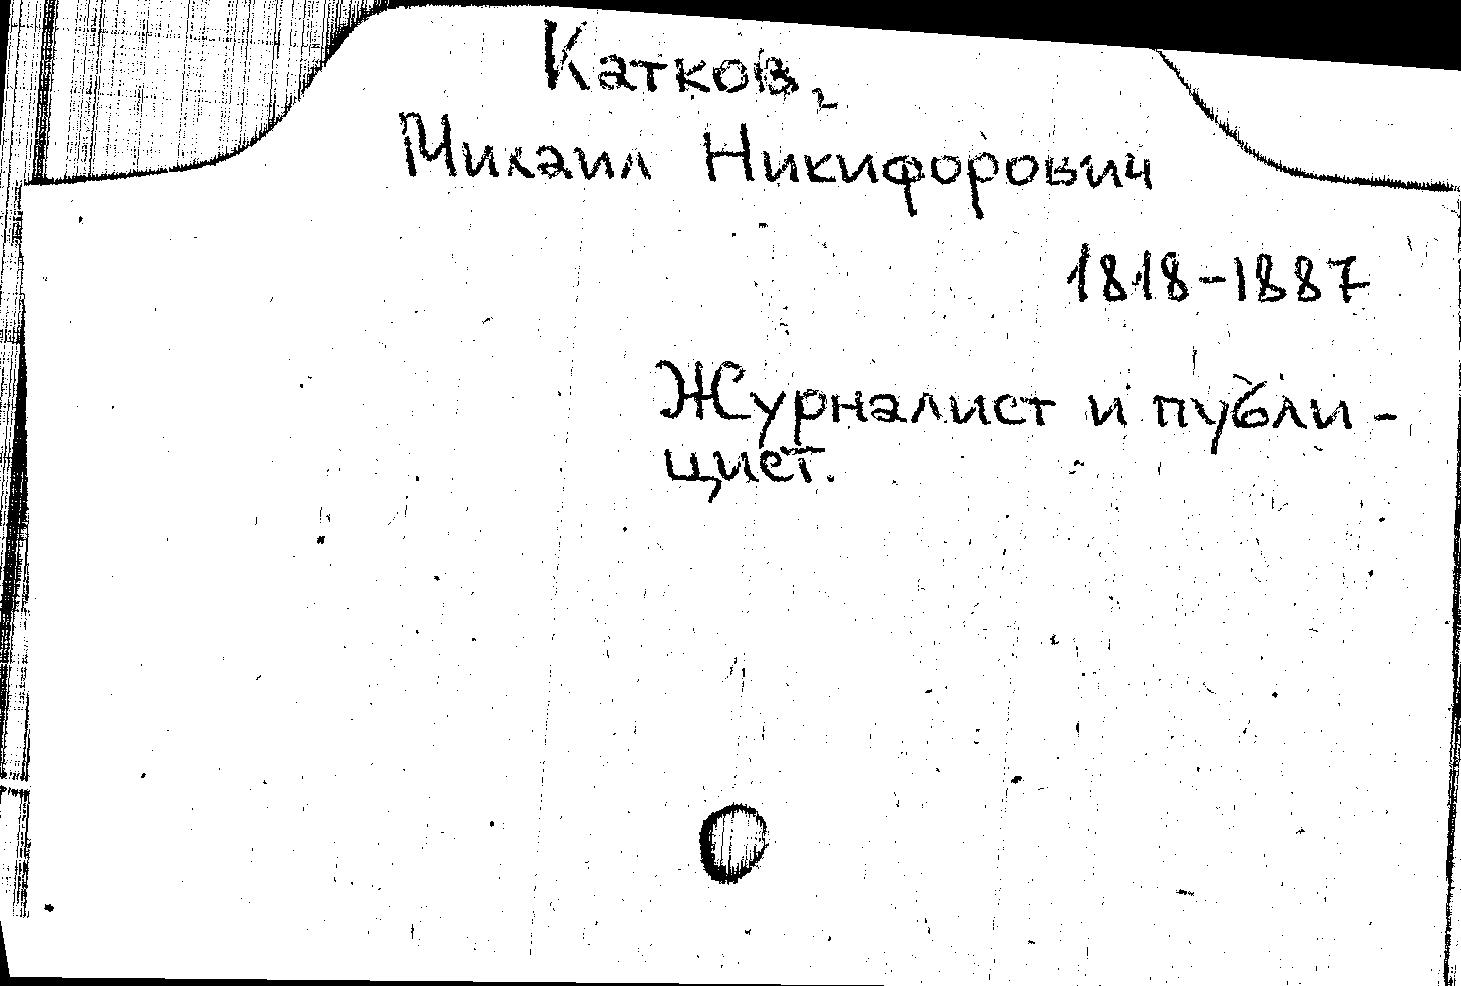 Катков,
Михаил Никифорович
1818-1887
Журналист и публи-
цист.